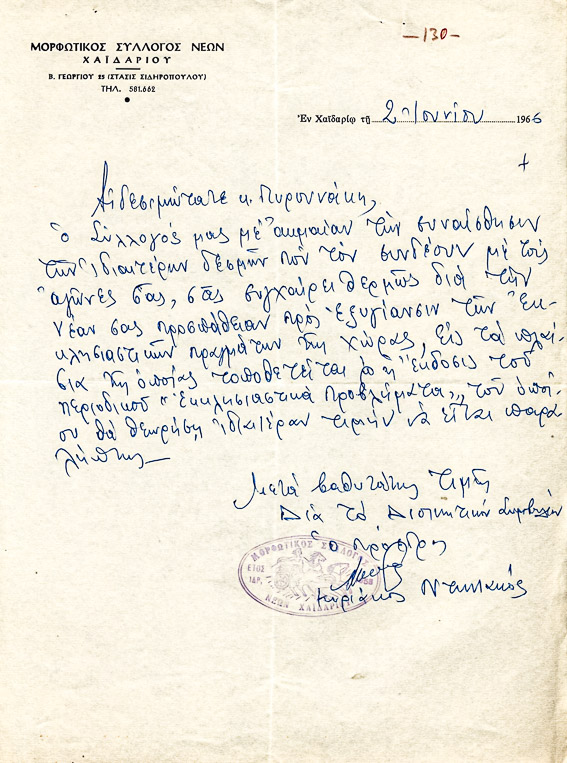 -130-
ΜΟΡΦΩΤΙΚΟΣ ΣΥΛΛΟΓΟΣ ΝΕΩΝ
ΧΑΪΔΑΡΙΟΥ
Β. ΓΕΩΡΓΙΟΥ 25 (ΣΤΑΣΙΣ ΣΙΔΗΡΟΠΟΥΛΟΥ)
ΤΗΛ. 581.662
Ἐν Χαϊδαρίῳ τῇ 2 Ἰουνίου 1966
+
Αἰδεσιμώτατε κ. Πυρουνάκη,
Ὁ Σύλλογός μας μὲ ἀκμαίαν τὴν συναίσθησιν
τῶν ἰδιαιτέρων δεσμῶν ποὺ τὸν συνδέουν μὲ τοὺς
ἀγῶνες σας, σᾶς συγχαίρει θερμῶς διὰ τὴν
νέαν σας προσπάθειαν πρὸς ἐξυγίανσιν τῶν Ἐκ-
κλησιαστικῶν πραγμάτων τῆς χώρας, εἰς τὰ πλαί-
σια τῆς ὁποίας τοποθετεῖται καὶ ἡ ἔκδοσις τοῦ
περιοδικοῦ "Ἐκκλησιαστικὰ Προβλήματα,, τοῦ ὁποί-
ου θὰ θεωρήσῃ ἰδιαιτέραν τιμὴν νὰ εἶναι παρα
λήπτης
Μετὰ βαθυτάτης τιμῆς
Διὰ τὸ Διοικητικὸν Συμβούλιον
Ὁ Πρόεδρος
ΜΟΡΦΩΤΙΚΟΣ ΣΥΛΛΟΓΟΣ
ΕΤΟΣ
ΙΔΡ.
ΝΕΩΝ ΧΑΪΔΑΡΙΟΥ
Κυριάκος